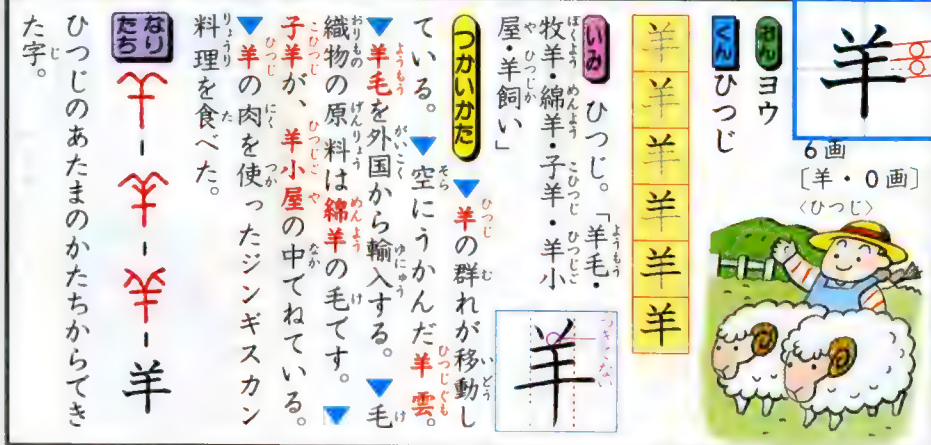 羊
6画
〔羊・0画〕
〈ひつじ〉
おん ヨウ
くん ひつじ
羊羊羊羊羊羊
いみ ひつじ。「羊毛・
牧羊・綿羊・子羊・羊小
屋・羊飼い」
羊
つきでない
つかいかた ▼羊の群れが移動し
ている。▼空にうかんだ羊雲。
▼羊毛を外国から輸入する。▼毛
織物の原料は綿羊の毛です。▼
子羊が、羊小屋の中でねている。
▼羊の肉を使ったジンギスカン
料理を食べた。
なりたち
羊
ひつじのあたまのかたちからでき
た字。